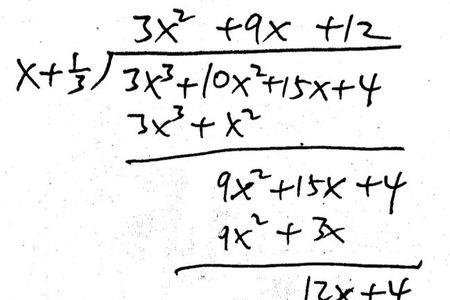 3x² +9x +12
x+⅓) 3x³+10x²+15x+4
3x³+x²
9x²+15x+4
9x²+3x
12x+4